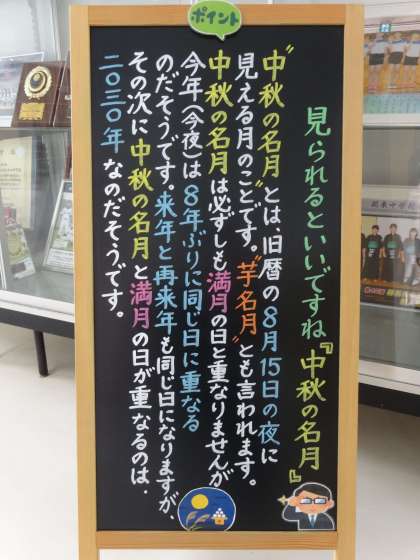 ポイント
見られるといいですね『中秋の名月』
"中秋の名月"とは、旧暦の8月15日の夜に
見える月のことです。"芋名月"とも言われます。
中秋の名月は必ずしも満月の日と重なりませんが
今年(今夜)は8年ぶりに同じ日に重なる
のだそうです。来年と再来年も同じ日になりますが、
その次に中秋の名月と満月の日が重なるのは.
二〇三〇年なのだそうです。